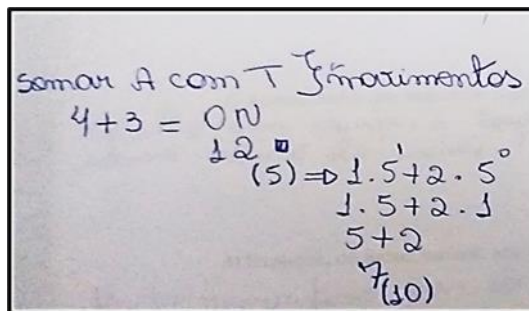 somar A com T } movimentos
4+3 = ON
12
(5) ⇒ 1.5¹+2.5⁰
1.5+2.1
5+2
7(10)